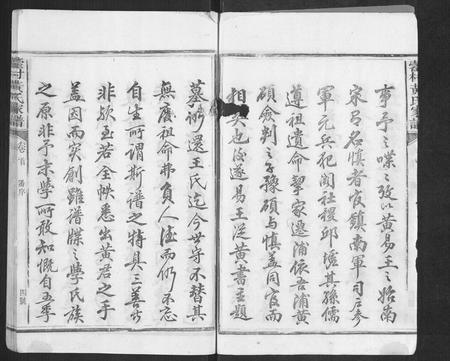 事予之喋之攷以黃易王之始南
宋多名慎者官鎮南軍司戶參
軍元兵犯闕社稷邱墟其孫儒
遵祖遺命挈家遷浦依吾浦黃
碩僉判之子豫碩與慎蓋同官而
相 也後遂易王從黃書主題
墓祔還王氏迄今世守不替其
無廢祖命弗負人德而仍不忘
自生所謂斯譜之特具三善
非歟至若全帙悉出黃君之手
蓋因而實創雖譜牒之學氏族
之原非予末學所敢知慨自五季
黃氏家譜
卷首
四號